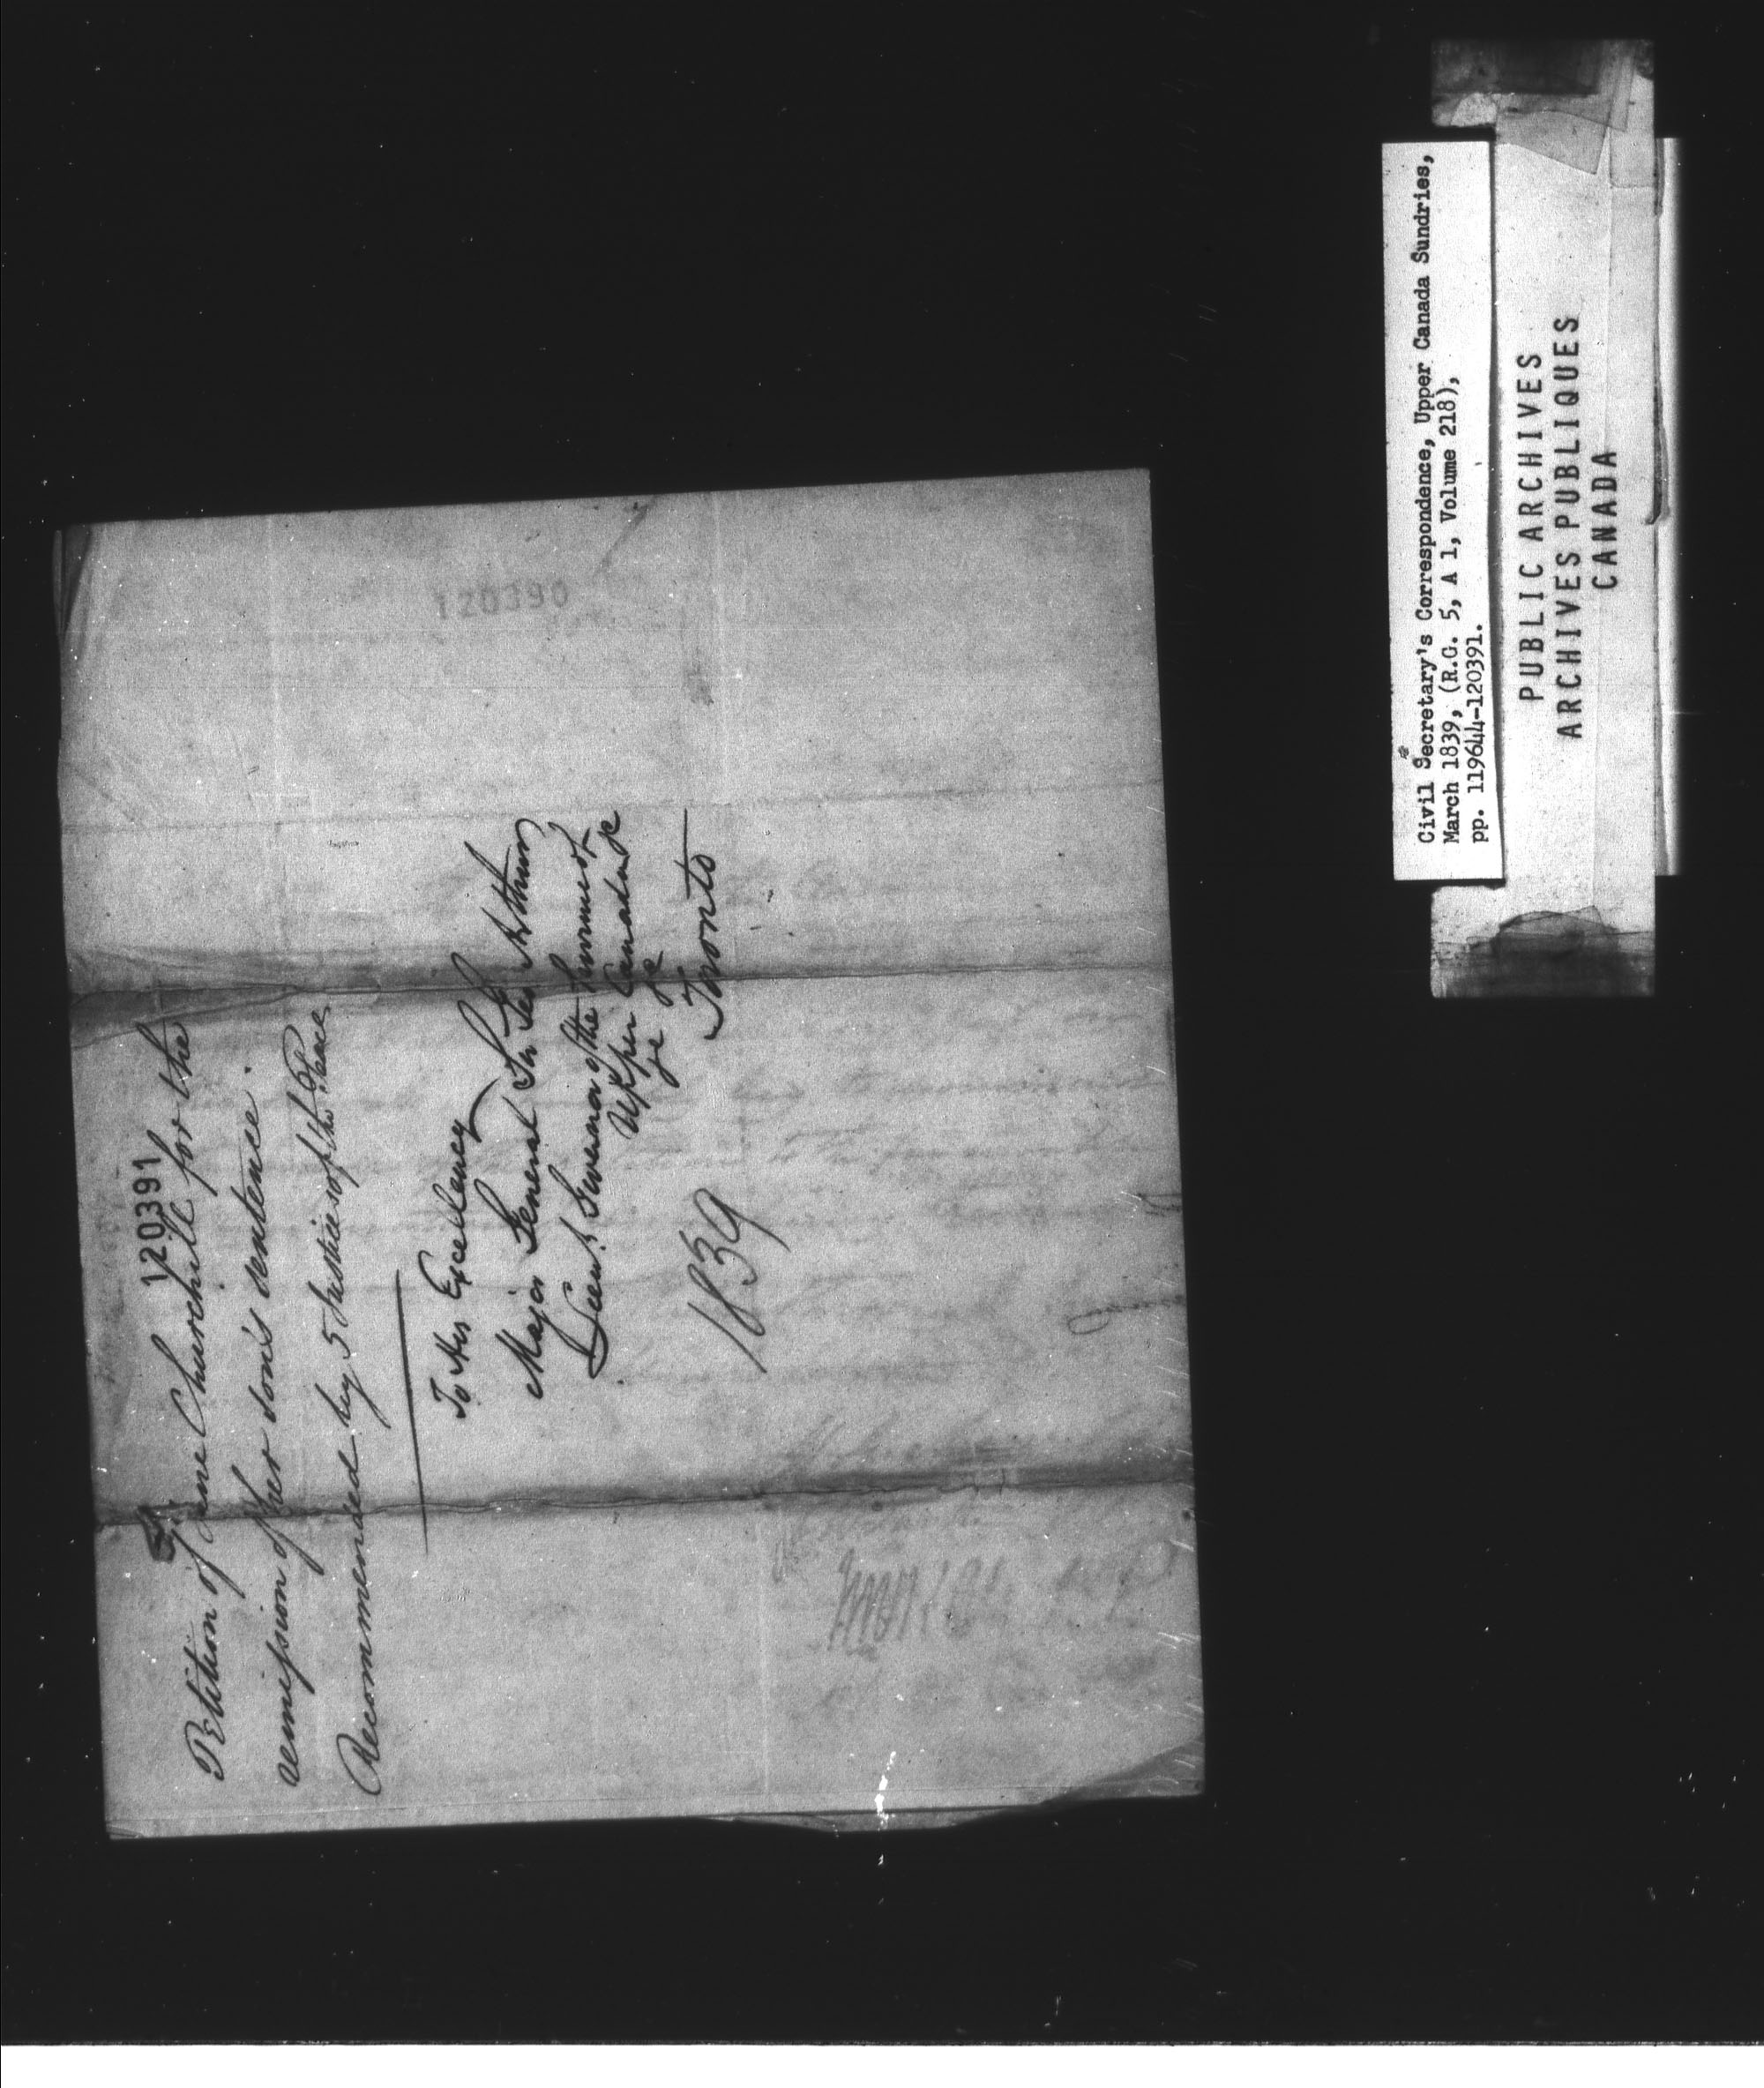 120391
Petition of Jane Churchill for the
remission of her son's sentence.
Recommended by 5 Justices of the Peace
To His Excellency
Major General Sir Geo Arthur
Lieut. Governor of the Province of
Upper Canada &c
&c &c
Toronto
1839
120390
Civil Secretary's Correspondence, Upper Canada Sundries,
March 1839, (R.G. 5, A 1, Volume 218),
pp. 119644-120391.
PUBLIC ARCHIVES
ARCHIVES PUBLIQUES
CANADA